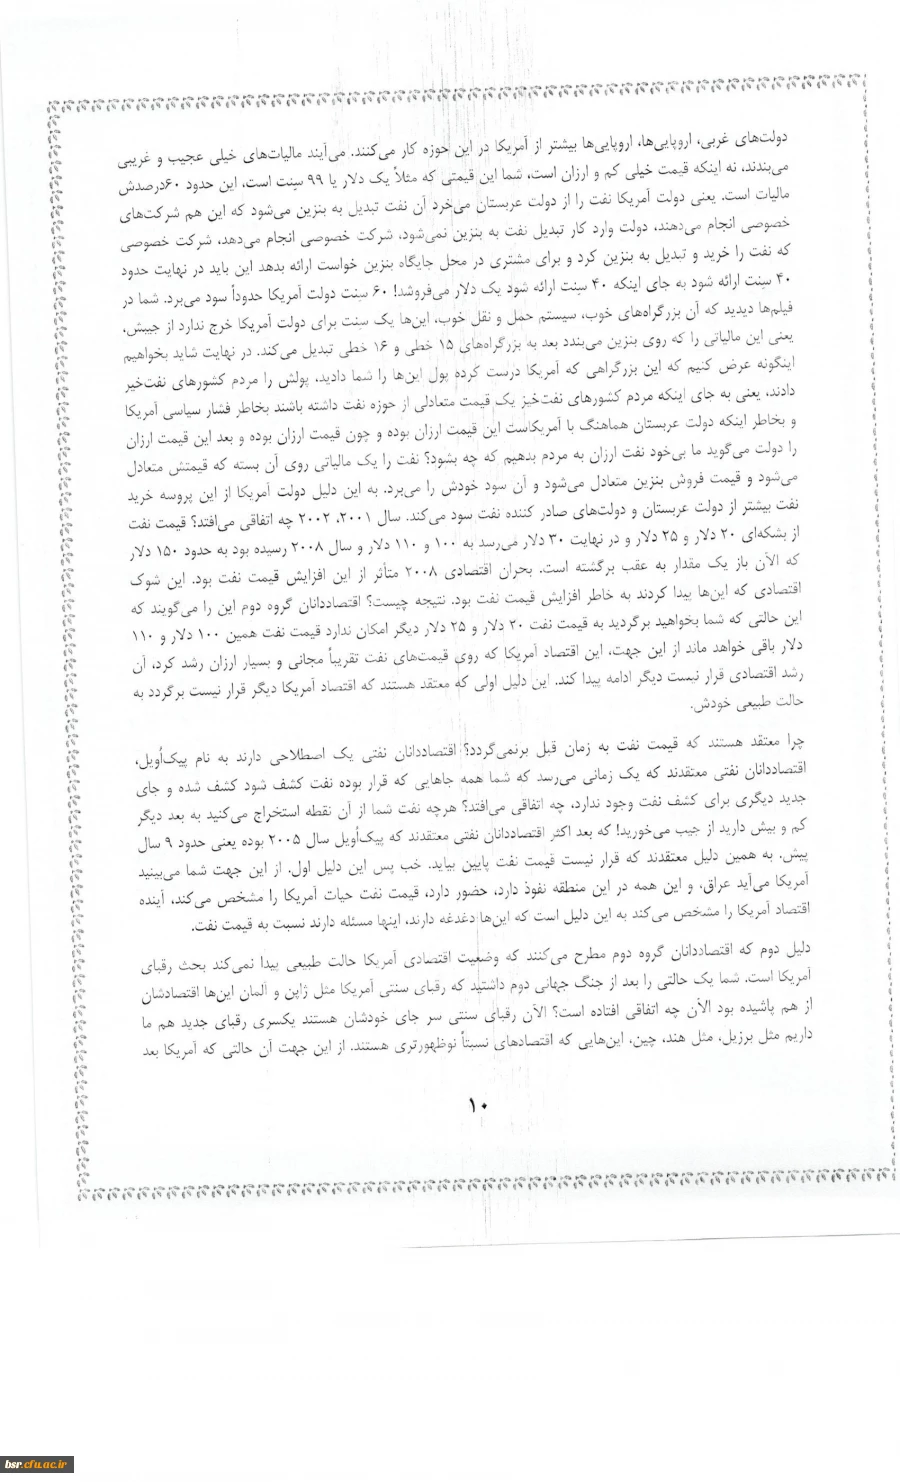 دولت‌های غربی، اروپایی‌ها، اروپایی‌ها بیشتر از آمریکا در این حوزه کار می‌کنند. می‌آیند مالیات‌های خیلی عجیب و غریبی
می‌بندند، نه اینکه قیمت خیلی کم و ارزان است، شما این قیمتی که مثلاً یک دلار یا ۹۹ سِنت است، این حدود ۶۰درصدش
مالیات است. یعنی دولت آمریکا نفت را از دولت عربستان می‌خرد آن نفت تبدیل به بنزین می‌شود که این هم شرکت‌های
خصوصی انجام می‌دهند، دولت وارد کار تبدیل نفت به بنزین نمی‌شود، شرکت خصوصی انجام می‌دهد، شرکت خصوصی
که نفت را خرید و تبدیل به بنزین کرد و برای مشتری در محل جایگاه بنزین خواست ارائه بدهد این باید در نهایت حدود
۴۰ سِنت ارائه شود به جای اینکه ۴۰ سِنت ارائه شود یک دلار می‌فروشد! ۶۰ سِنت دولت آمریکا حدوداً سود می‌برد. شما در
فیلم‌ها دیدید که آن بزرگراه‌های خوب، سیستم حمل و نقل خوب، این‌ها یک سِنت برای دولت آمریکا خرج ندارد از جیبش،
یعنی این مالیاتی را که روی بنزین می‌بندد بعد به بزرگراه‌های ۱۵ خطی و ۱۶ خطی تبدیل می‌کند. در نهایت شاید بخواهیم
اینگونه عرض کنیم که این بزرگراهی که آمریکا درست کرده پول این‌ها را شما دادید، پولش را مردم کشورهای نفت‌خیز
دادند، یعنی به جای اینکه مردم کشورهای نفت‌خیز یک قیمت متعادلی از حوزه نفت داشته باشند بخاطر فشار سیاسی آمریکا
و بخاطر اینکه دولت عربستان هماهنگ با آمریکاست این قیمت ارزان بوده و چون قیمت ارزان بوده و بعد این قیمت ارزان
را دولت می‌گوید ما بی‌خود نفت ارزان به مردم بدهیم که چه بشود؟ نفت را یک مالیاتی روی آن بسته که قیمتش متعادل
می‌شود و قیمت فروش بنزین متعادل می‌شود و آن سود خودش را می‌برد. به این دلیل دولت آمریکا از این پروسه خرید
نفت بیشتر از دولت عربستان و دولت‌های صادر کننده نفت سود می‌کند. سال ۲۰۰۱، ۲۰۰۲ چه اتفاقی می‌افتد؟ قیمت نفت
از بشکه‌ای ۲۰ دلار و ۲۵ دلار و در نهایت ۳۰ دلار می‌رسد به ۱۰۰ و ۱۱۰ دلار و سال ۲۰۰۸ رسیده بود به حدود ۱۵۰ دلار
که الآن باز یک مقدار به عقب برگشته است. بحران اقتصادی ۲۰۰۸ متأثر از این افزایش قیمت نفت بود. این شوک
اقتصادی که این‌ها پیدا کردند به خاطر افزایش قیمت نفت بود. نتیجه چیست؟ اقتصاددانان گروه دوم این را می‌گویند که
این حالتی که شما بخواهید برگردید به قیمت نفت ۲۰ دلار و ۲۵ دلار دیگر امکان ندارد قیمت نفت همین ۱۰۰ دلار و ۱۱۰
دلار باقی خواهد ماند از این جهت، این اقتصاد آمریکا که روی قیمت‌های نفت تقریباً مجانی و بسیار ارزان رشد کرد، آن
رشد اقتصادی قرار نیست دیگر ادامه پیدا کند. این دلیل اولی که معتقد هستند که اقتصاد آمریکا دیگر قرار نیست برگردد به
حالت طبیعی خودش.
چرا معتقد هستند که قیمت نفت به زمان قبل برنمی‌گردد؟ اقتصاددانان نفتی یک اصطلاحی دارند به نام پیک‌اُویل،
اقتصاددانان نفتی معتقدند که یک زمانی می‌رسد که شما همه جاهایی که قرار بوده نفت کشف شود کشف شده و جای
جدید دیگری برای کشف نفت وجود ندارد، چه اتفاقی می‌افتد؟ هرچه نفت شما از آن نقطه استخراج می‌کنید به بعد دیگر
کم و بیش دارید از جیب می‌خورید! که بعد اکثر اقتصاددانان نفتی معتقدند که پیک‌اُویل سال ۲۰۰۵ بوده یعنی حدود ۹ سال
پیش. به همین دلیل معتقدند که قرار نیست قیمت نفت پایین بیاید. خب پس این دلیل اول. از این جهت شما می‌بینید
آمریکا می‌آید عراق، و این همه در این منطقه نفوذ دارد، حضور دارد، قیمت نفت حیات آمریکا را مشخص می‌کند، آینده
اقتصاد آمریکا را مشخص می‌کند به این دلیل است که این‌ها دغدغه دارند، اینها مسئله دارند نسبت به قیمت نفت.
دلیل دوم که اقتصاددانان گروه دوم مطرح می‌کنند که وضعیت اقتصادی آمریکا حالت طبیعی پیدا نمی‌کند بحث رقبای
آمریکا است. شما یک حالتی را بعد از جنگ جهانی دوم داشتید که رقبای سنتی آمریکا مثل ژاپن و آلمان این‌ها اقتصادشان
از هم پاشیده بود الآن چه اتفاقی افتاده است؟ الآن رقبای سنتی سر جای خودشان هستند یکسری رقبای جدید هم ما
داریم مثل برزیل، مثل هند، چین، این‌هایی که اقتصادهای نسبتاً نوظهورتری هستند. از این جهت آن حالتی که آمریکا بعد
۱۰
bsr.cfu.ac.ir